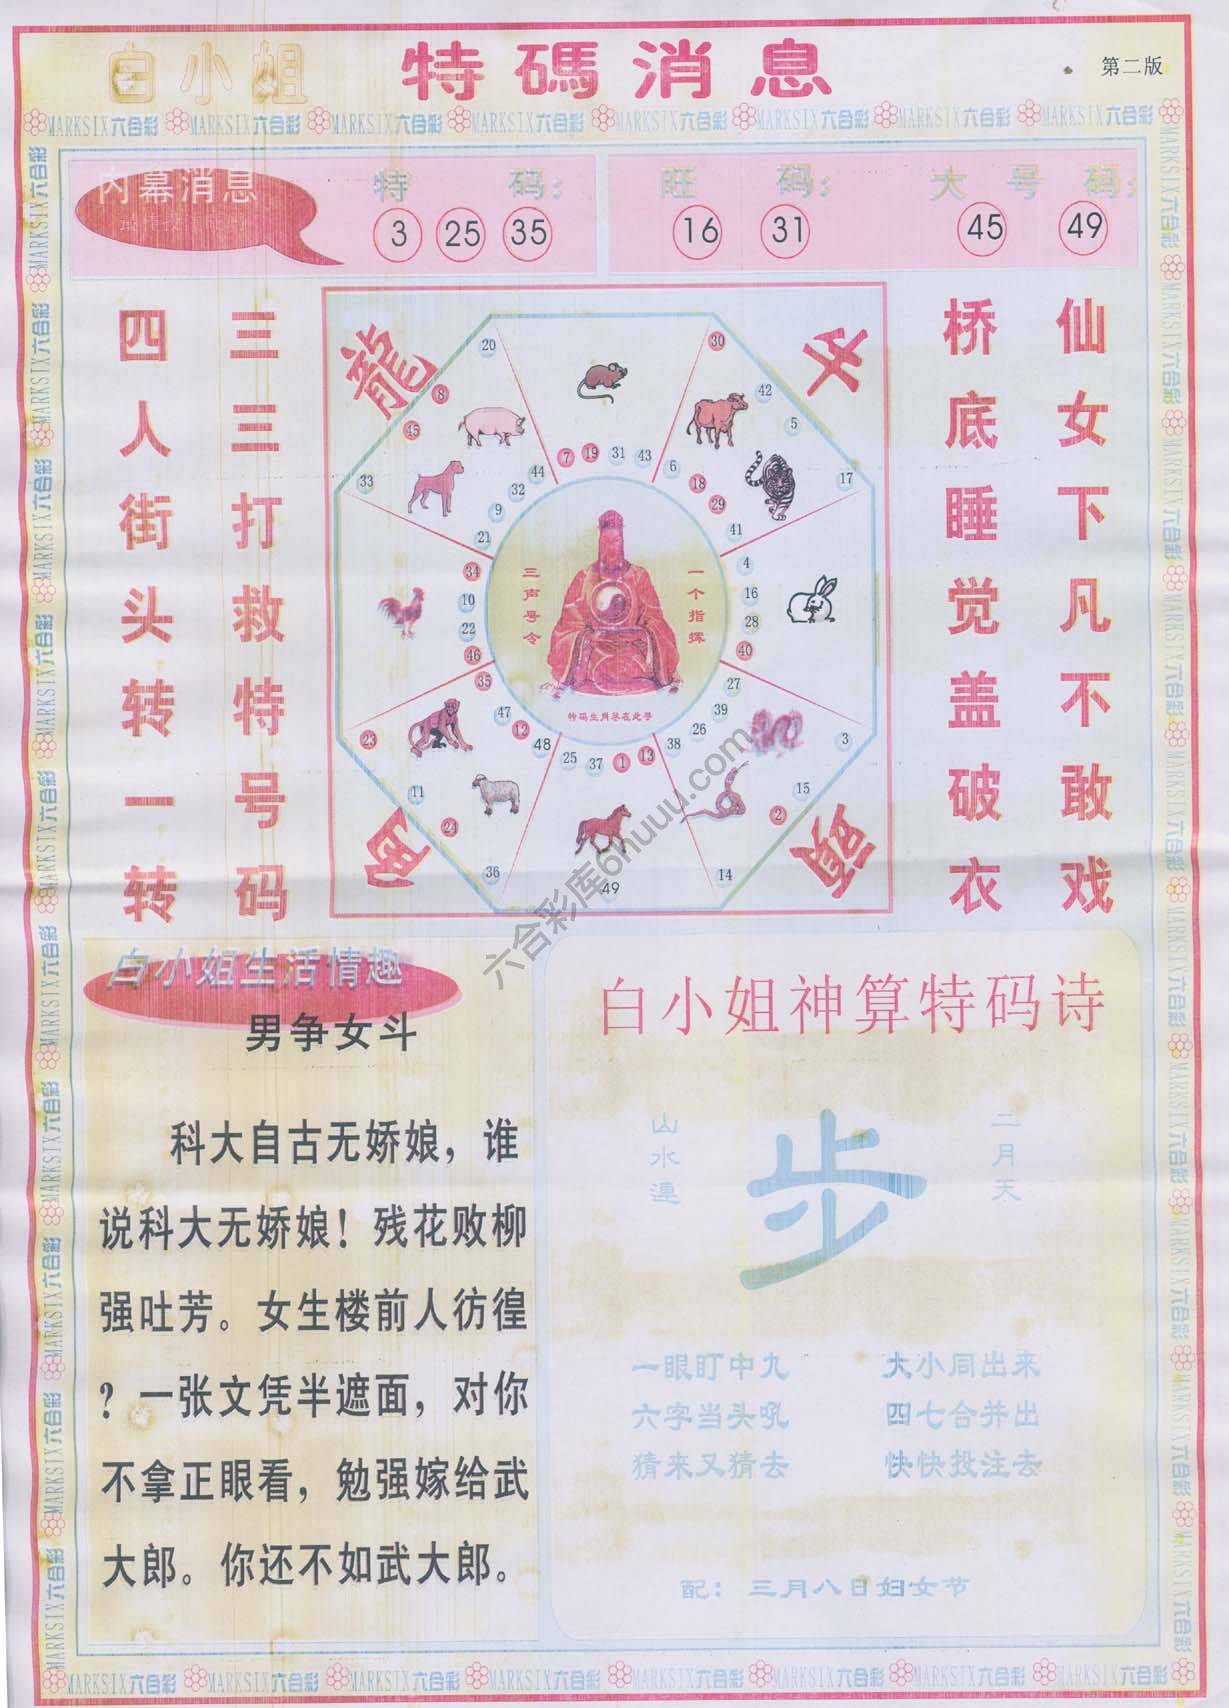 白小姐 特碼消息
第二版
MARKSIX六合彩 MARKSIX六合彩 MARKSIX六合彩 MARKSIX六合彩 MARKSIX六合彩 MARKSIX六合彩 MARKSIX六合彩 MARKSIX六合彩
内幕消息
特 码:
3 25 35
旺 码:
16 31
大 号 码:
45 49
仙女下凡不敢戏
桥底睡觉盖破衣
三三打救特号码
四人街头转一转
龍
20
30
8
42
45
5
33
44
7
19
31
43
6
17
32
18
9
29
21
41
34
4
10
16
22
28
46
40
一个指挥
三声号令
特码生肖尽在此寻
35
27
47
39
12
26
48
38
25
37
1
13
23
3
11
15
24
2
36
14
49
白小姐生活情趣
男争女斗
科大自古无娇娘，谁
说科大无娇娘！残花败柳
强吐芳。女生楼前人彷徨
？一张文凭半遮面，对你
不拿正眼看，勉强嫁给武
大郎。你还不如武大郎。
白小姐神算特码诗
二月天
山水連
步
一眼盯中九 大小同出来
六字当头吼 四七合并出
猜来又猜去 快快投注去
配：三月八日妇女节
MARKSIX六合彩 MARKSIX六合彩 MARKSIX六合彩 MARKSIX六合彩 MARKSIX六合彩 MARKSIX六合彩 MARKSIX六合彩
六合彩库6huuu.com